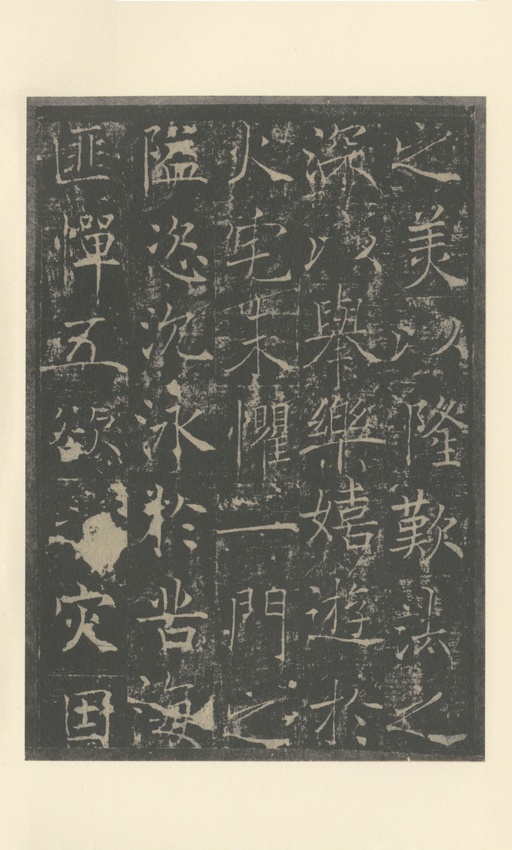 之美以隆歎法之
深以舉樂嬉遊於
火宅未懼一門之
隘恣沉泳於苦海
匪憚五慾災因